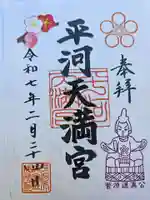 奉拝
平河天満宮
令和七年二月二十
菅原道真公